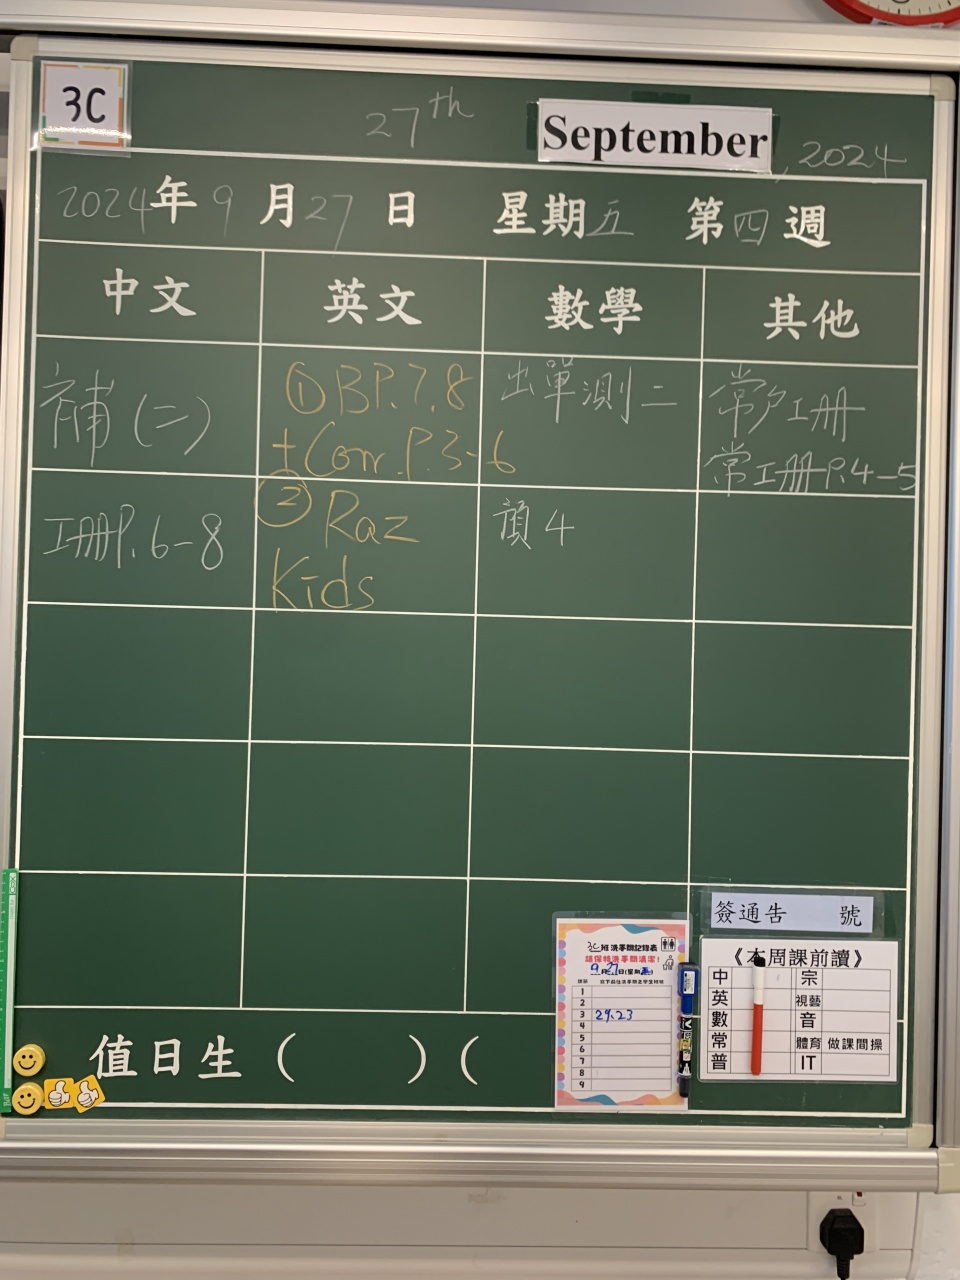 3C
27th September, 2024
2024年9月27日 星期五 第四週
中文 英文 數學 其他
補(二)
工册P.6-8
①BP.7,8
+Corr.P.3-6
②Raz
Kids
出單測二
顏4
常戶工册
常工册P.4-5
簽通告 號
3C班洗手間記錄表
請保持洗手間清潔！
9月27日(星期五)
1
2
3 29,23
4
5
6
7
8
9
《本周課前讀》
中 宗
英 視藝
數 音
常 體育 做課間操
普 IT
值日生 ( ) (